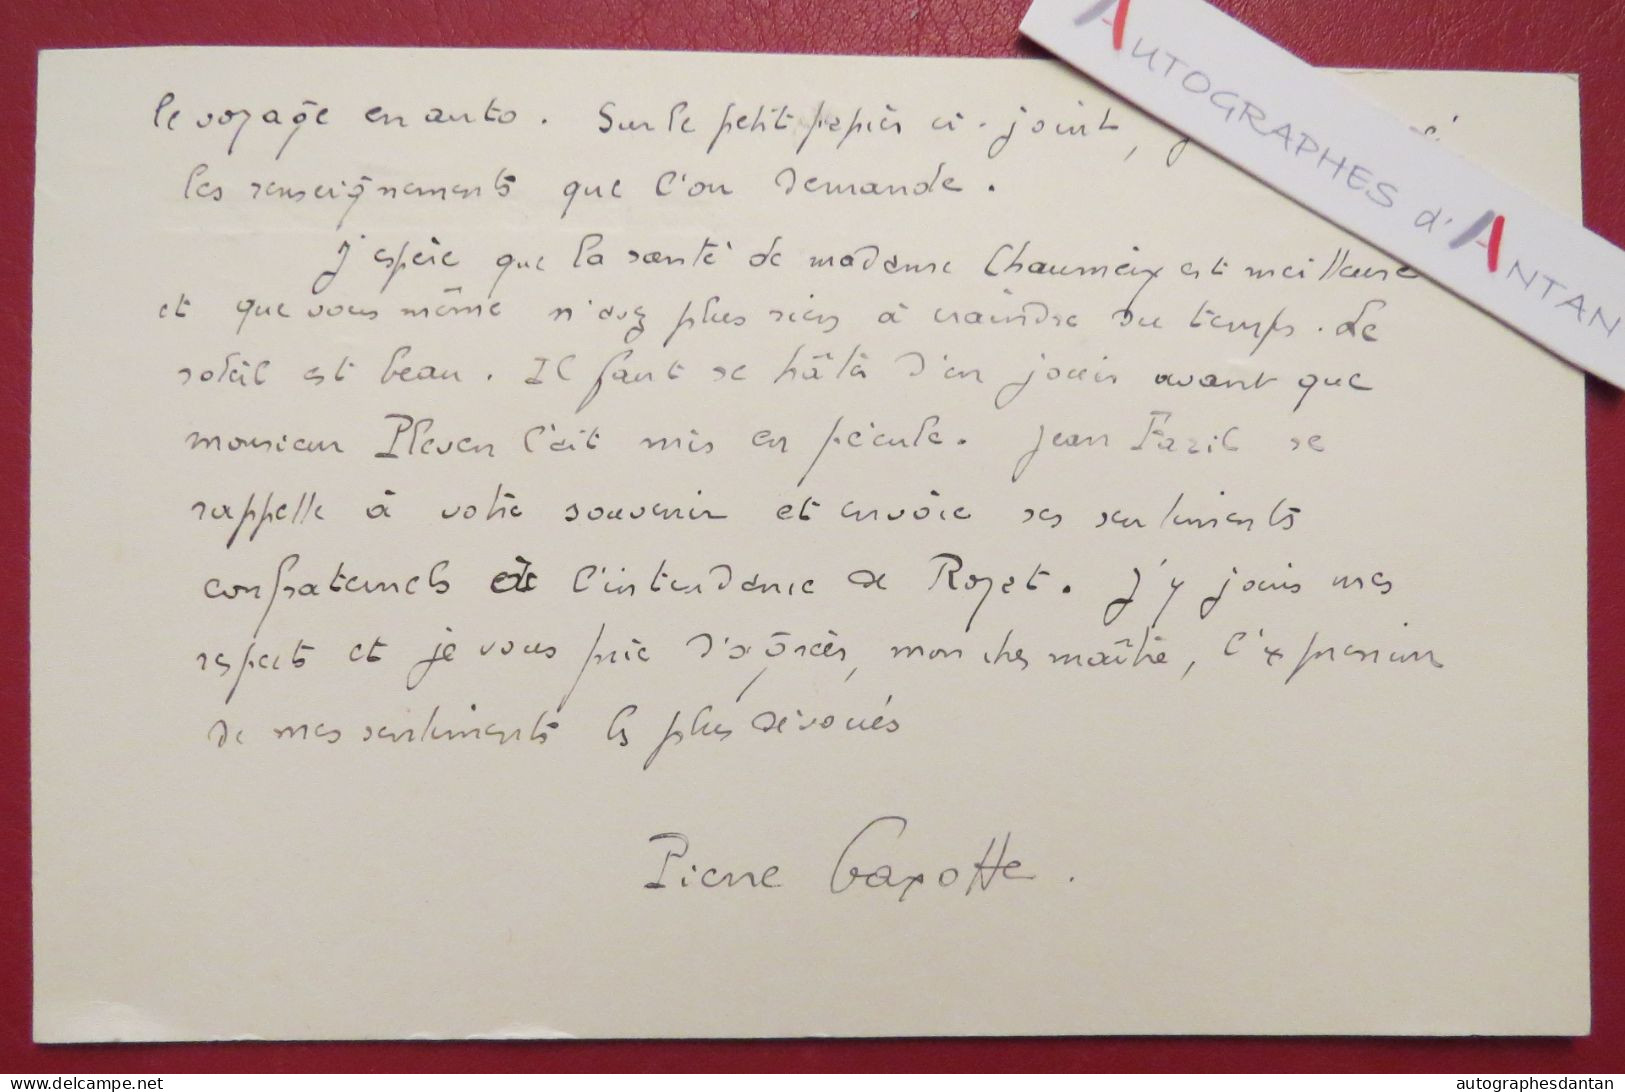 le voyage en auto. Sur le petit papier ci-joint, j
les renseignements que l'on demande.
J'espère que la santé de madame Chaumeix est meilleure
et que vous même n'avez plus rien à craindre du temps. Le
soleil est beau. Il faut se hâter d'en jouir avant que
monsieur Pleven l'ait mis en pécule. Jean Fazil se
rappelle à votre souvenir et envoie ses sentiments
confraternels à l'intendance de Rozet. J'y joins mes
respects et je vous prie d'agréer, mon cher maître, l'expression
de mes sentiments les plus dévoués
Pierre Gaxotte.
AUTOGRAPHES d'ANTAN
© delcampe.net
autographesdantan